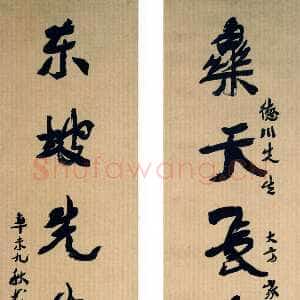 樂天長
德川先生大方家
东坡先生
辛未九秋